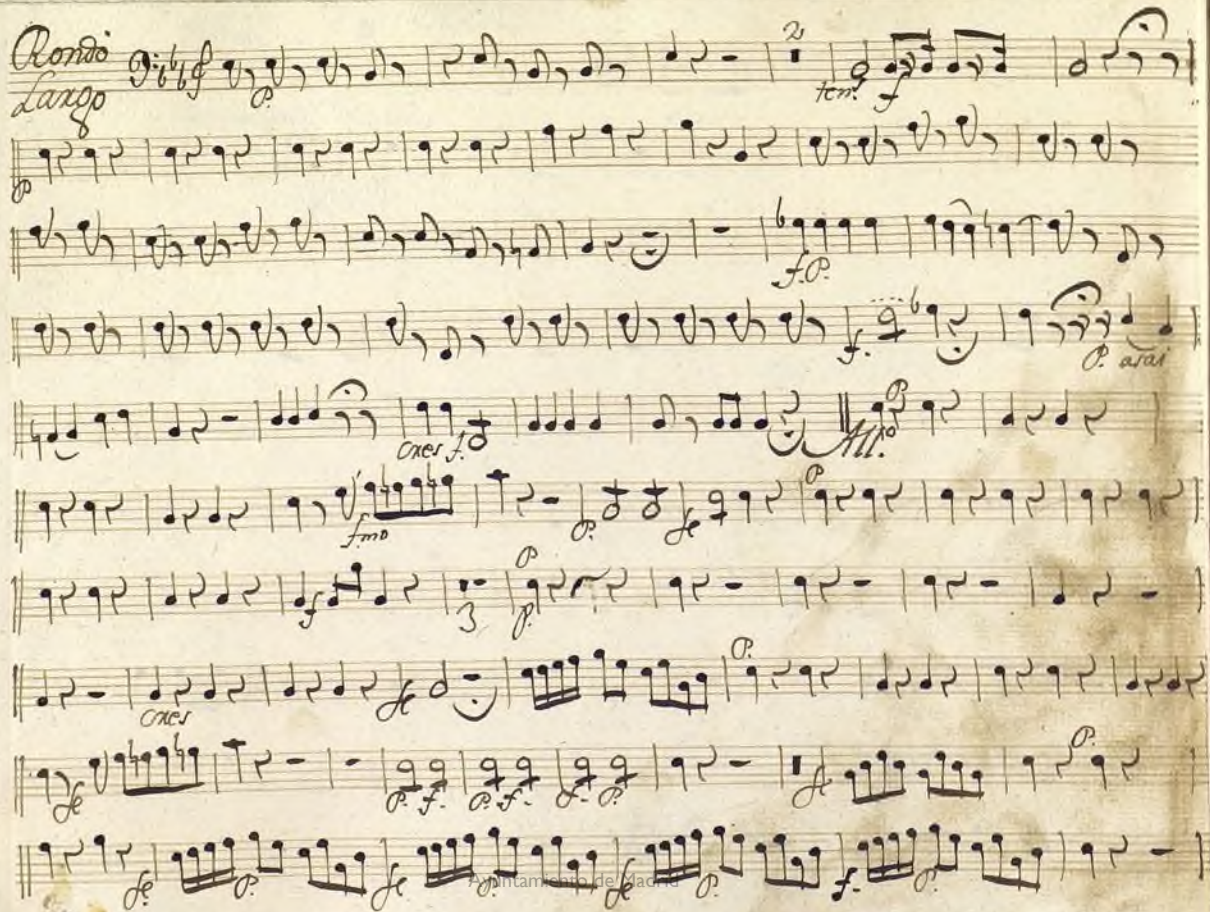 Rondò
Largo
P. 2 ten.e f
P
f. P.
f. P. asai
cres f. All.o P
fmo P. fe P
f 3 P P.
cres fe P.
fe P. f. P. f. f. P. fe P.
fe P. fe P. fe P. f. P.
Ayuntamiento de Madrid